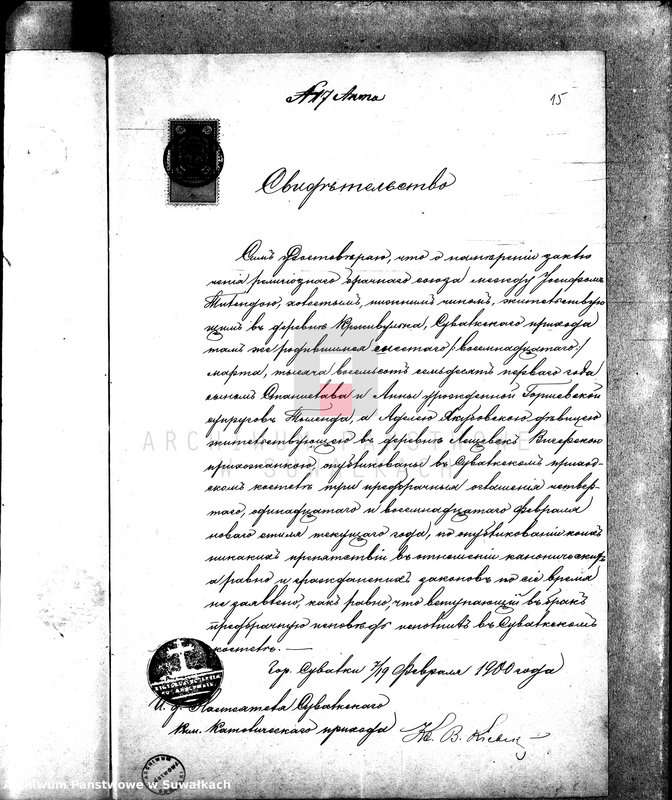 № 17 Акта
15
Свидѣтельство
Симъ Удостовѣряю, что о намѣреніи заклю
ченія религіознаго брачнаго союза между Іосифомъ
холостымъ, жительствую
щимъ въ деревнѣ Кривулька, Сувалкскаго прихода
тамъ же родившимся шестаго /восемнадцатаго/
марта, тысяча восемьсотъ семьдесятъ перваго года
сыномъ Станислава и Анны урожденной
супруговъ а девицею
жительствующею въ деревнѣ Лещевекъ
прихожанкою, опубликованы въ Сувалкскомъ приход-
скомъ костелѣ три предбрачныя оглашенія четвер-
таго, одинадцатаго и восемнадцатаго февраля
новаго стиля текущаго года, по опубликованіи коихъ
никакихъ препятствій въ отношеніи каноническихъ
а равно и гражданскихъ законовъ по сіе время
не заявлено, какъ равно, что вступающій въ бракъ
предбрачную исповѣдь исполнилъ въ Сувалкскомъ
костелѣ. —
Гор. Сувалки 7/19 Февраля 1900 года
И. д. Настоятеля Сувалкскаго
Рим. Католическаго прихода
Кс. В.
ARCHIWUM PAŃSTWOWE
W SUWAŁKACH
Archiwum Państwowe w Suwałkach